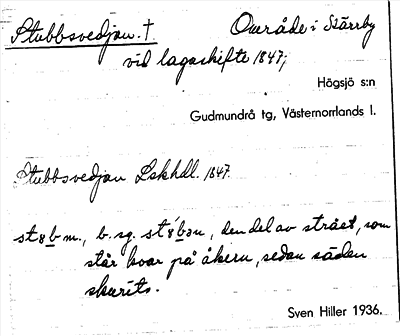 Stubbsvedjan. † Område i Stärrby
vid lagaskifte 1847;
Högsjö s:n
Gudmundrå tg, Västernorrlands l.
Stubbsvedjan Lskhdl. 1847.
m., b. sg. den del av strået, som
står kvar på åkern, sedan säden
skurits.
Sven Hiller 1936.